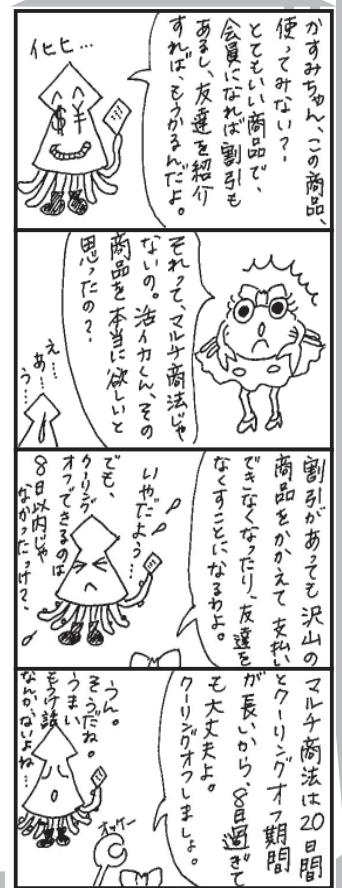 かすみちゃん、この商品、
使ってみない？
とてもいい商品で、
会員になれば割引も
あるし、友達を紹介
すれば、もうかるんだよ。
ヒヒ…
それって、マルチ商法じゃ
ないの。活イカくん、その
商品を本当に欲しいと
思ったの？
え…
あ…
う…
割引があっても沢山の
商品をかかえて支払い
できなくなったり、友達を
なくすことになるわよ。
いやだよう…
でも、
クーリング
オフできるのは
8日以内じゃ
なかったっけ？
マルチ商法は20日間
とクーリングオフ期間
が長いから、8日過ぎて
も大丈夫よ。
クーリングオフしましょ。
オッケー
うん。
そうだね。
うまい
もうけ話
なんか、ないよね…